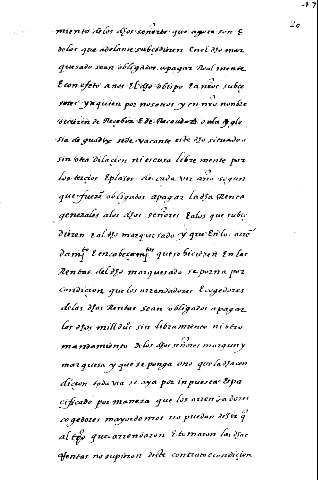 20
miento de los dhos señores que agora son E
de los que adelante subcedieren En el dho mar
quesado sean obligados a pagar Realmente
E con efeto a nos El dho obispo E a nros subce
sores y a quien por nosotros y en nro nonbre
oviere de Recebir E de Recaudar o a la Ygle
sia de guadix sede vacante este dho situado
sin otra dilacion ni escusa libremente por
los tercios E plazos de cada un año segun
que fueren obligados a pagar la dha Renta
generales a los dhos señores E a los que subce
dieren En el dho marquesado y que En los arre
damyos E encabeçamyos que se hizieren En las
Rentas del dho marquesado se ponga por
condicion que los arrendadores E cogedores
de las dhas Rentas sean obligados a pagar
los dhos mill ds sin libramiento ni otro
mandamiento de los dhos señores marques y
marquesa y que se ponga o no que la dha con
dicion todavia se aya por inpuesta Espe
cificado por manera que los arrendadores
cogedores mayordomos no puedan dezir q
al tpo que arrendaron E tomaron las dhas
Rentas no supieron deste contrato condicion